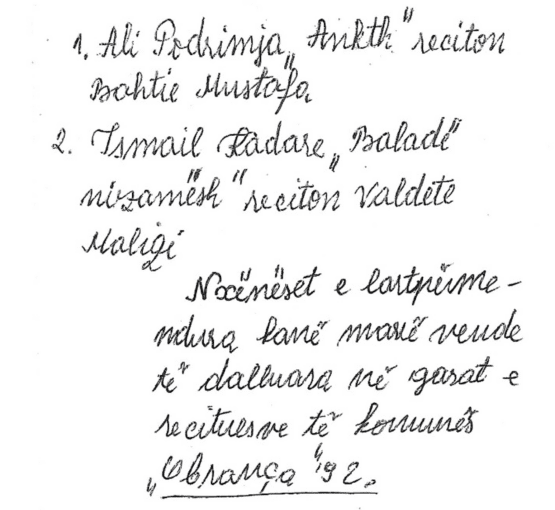 1. Ali Podrimja „Ankth" reciton
Bahtie Mustafa
2. Ismail Kadare „Baladë
nizamësh" reciton Valdete
Maliqi
Nxënëset e lartpërme-
ndura kanë marrë vende
të dalluara në garat e
recituesve të komunës
„Obrança" 92.